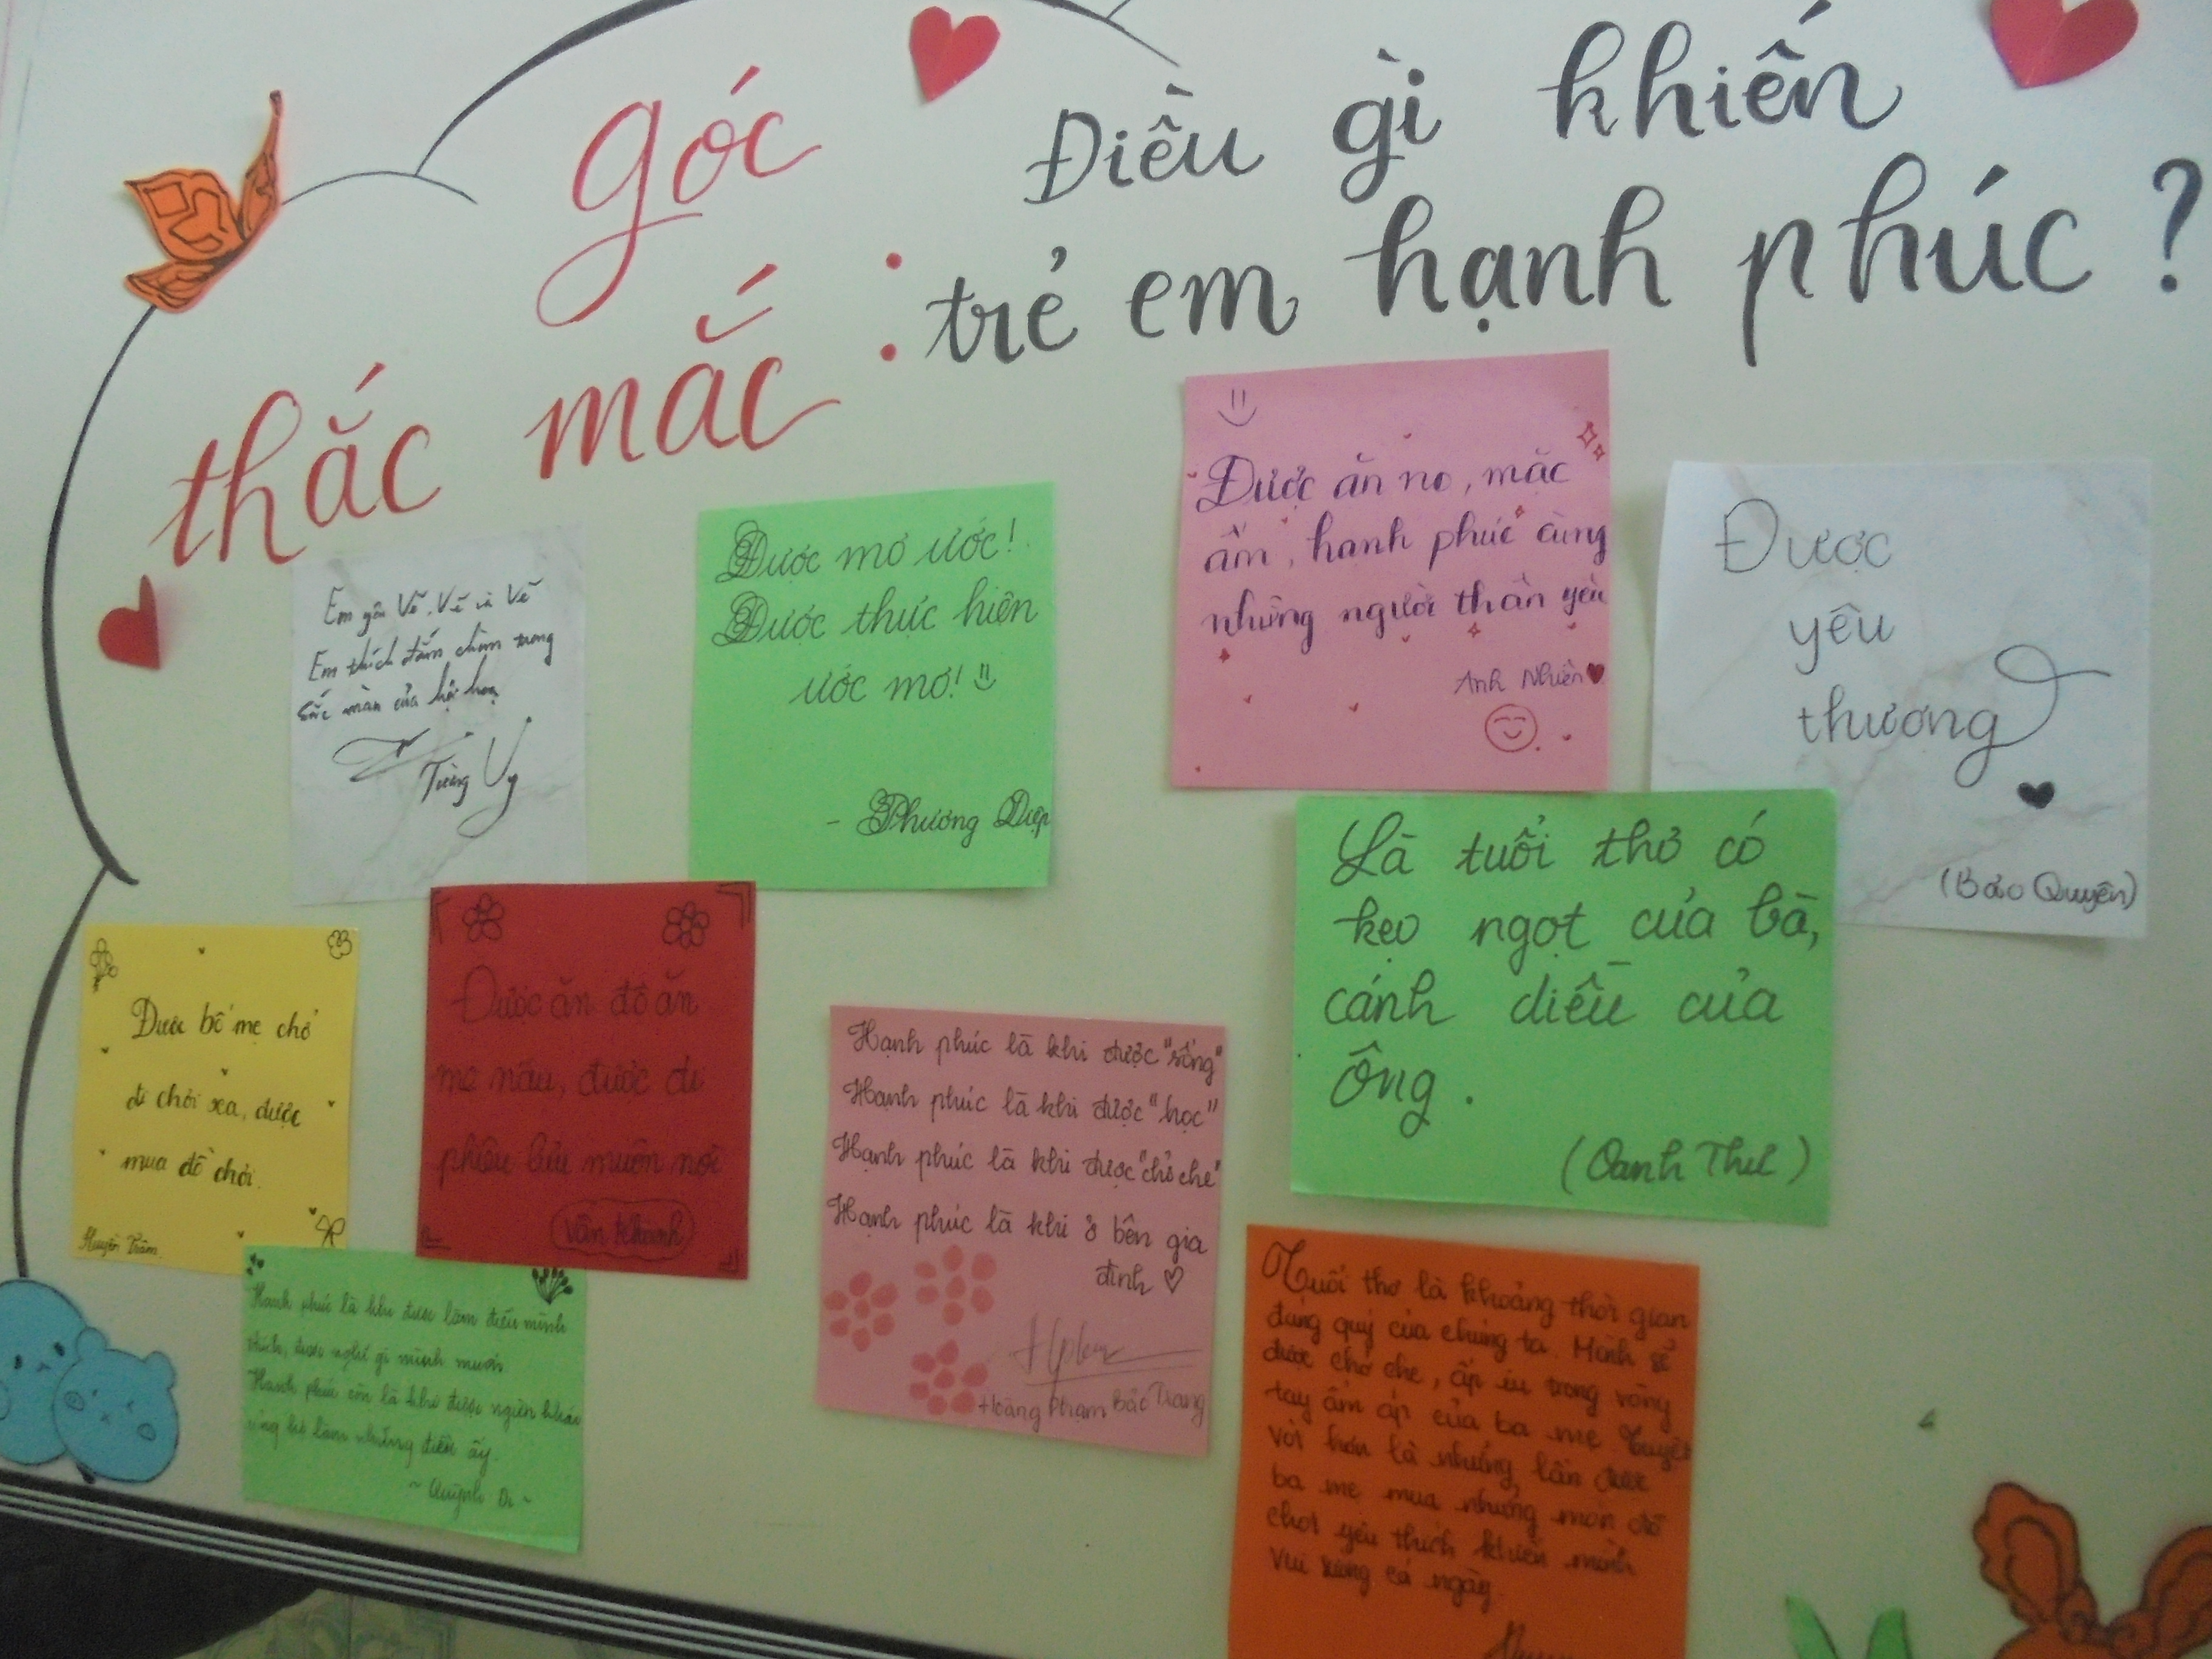 góc
thắc mắc :
Điều gì khiến
trẻ em hạnh phúc ?
Em yêu Vẽ, Vẽ và Vẽ
Em thích đắm chìm trong
sắc màu của hội hoạ
Tường Vy
Được mơ ước!
Được thực hiện
ước mơ!
- Phương Diệp
Được ăn no, mặc
ấm, hạnh phúc cùng
những người thân yêu
Anh Nhiên
Được
yêu
thương
(Bảo Quyên)
Là tuổi thơ có
kẹo ngọt của bà,
cánh diều của
ông.
(Oanh Thư)
Được bố mẹ chở
đi chơi xa, được
mua đồ chơi.
Huyền Trâm
Được ăn đồ ăn
mẹ nấu, được đi
phiêu lưu muôn nơi
Vân Khanh
Hạnh phúc là khi được "sống"
Hạnh phúc là khi được "học"
Hạnh phúc là khi được "chở che"
Hạnh phúc là khi ở bên gia
đình
Hoàng Phạm Bảo Trang
Hạnh phúc là khi được làm điều mình
thích, được nghĩ gì mình muốn
Hạnh phúc còn là khi được người khác
ủng hộ làm những điều ấy.
~ Quỳnh Di ~
Tuổi thơ là khoảng thời gian
đáng quý của chúng ta. Mình sẽ
được chở che, ấp iu trong vòng
tay ấm áp của ba mẹ. Tuyệt
vời hơn là những lần được
ba mẹ mua những món đồ
chơi yêu thích khiến mình
vui sướng cả ngày.